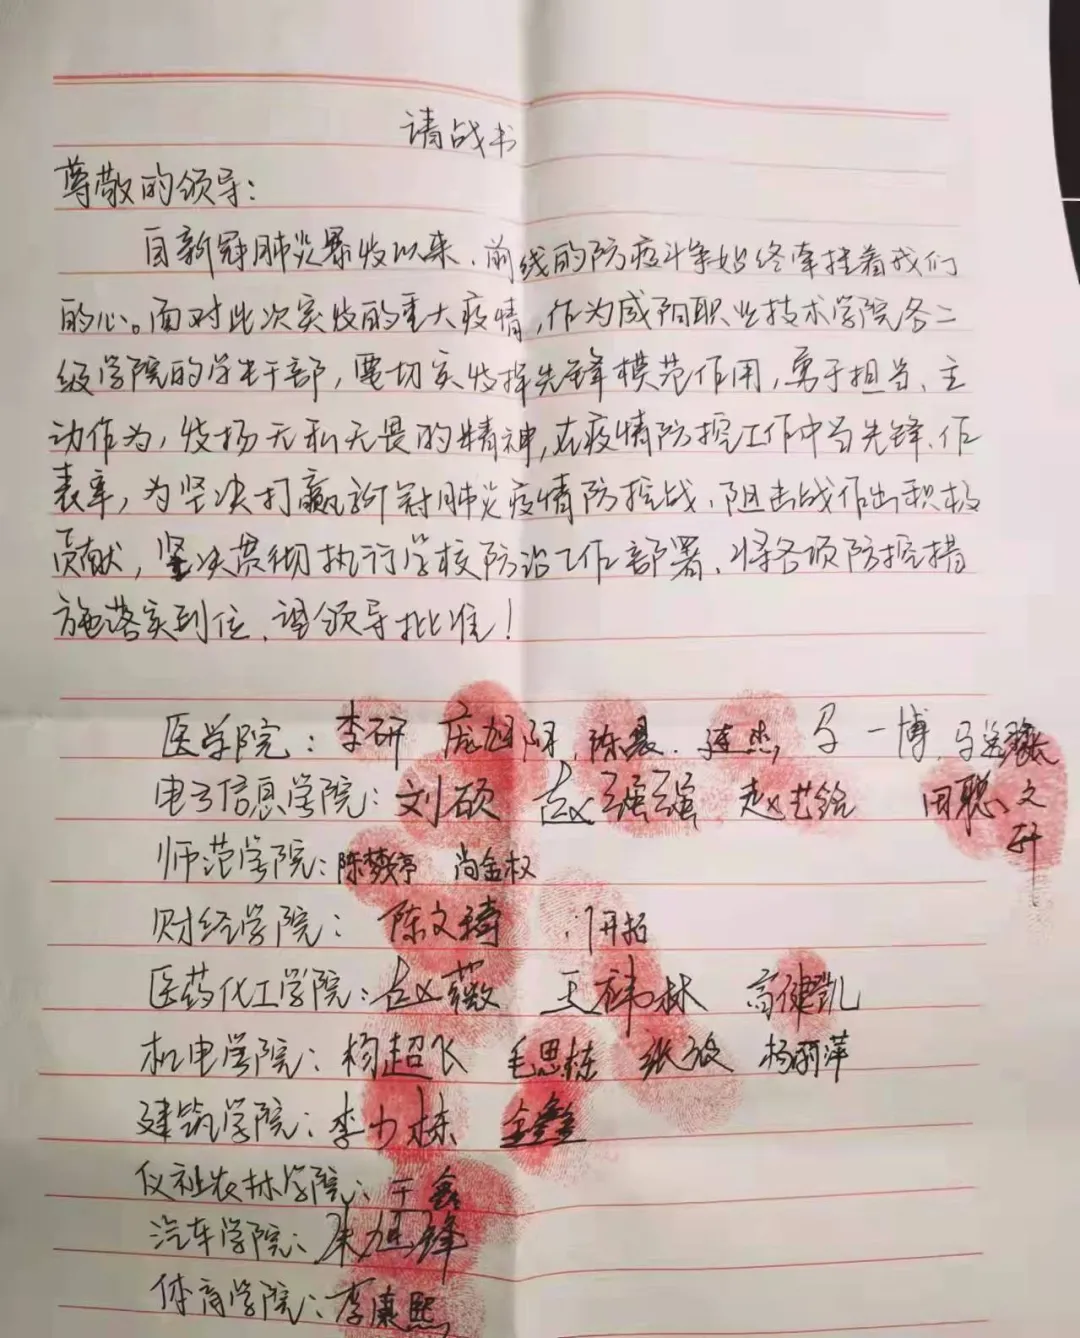 请战书
尊敬的领导：
自新冠肺炎暴发以来、前线的防疫斗争始终牵挂着我们
的心。面对此次突发的重大疫情，作为咸阳职业技术学院各二
级学院的学生干部，要切实发挥先锋模范作用，勇于担当、主
动作为，发扬无私无畏的精神，在疫情防控工作中当先锋、作
表率，为坚决打赢新冠肺炎疫情防控战、阻击战作出积极
贡献，坚决贯彻执行学校防治工作部署、将各项防控措
施落实到位、望领导批准！
医学院：李研 庞旭阳、陈晨、连杰，马一博、
电子信息学院：刘硕 赵强强 赵艺铭 田聪、文轩
师范学院：陈梦亭 尚金权
财经学院：陈文琦
医药化工学院：赵薇 王祎林 高健凯
机电学院：杨超飞 毛思栋 张波 杨丽萍
建筑学院：李力栋
农林学院：王鑫
汽车学院：朱旭锋
体育学院：李康熙